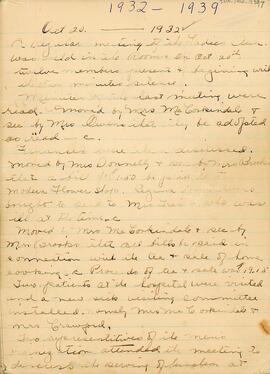 1932 - 1939
Oct 20. — 1932
A regular meeting of the Ladies
was held in the rooms on Oct 20th
twelve members present & beginning with
minutes silence.
Minutes of the last meeting were
read. Moved by Mrs McCorkindale &
sec by Mrs that they be adopted
as read c.
Finances were then discussed.
Moved by Mrs Donnelly & sec by Mrs Brooks
that a bill of be paid to
Modern Flower Shop.
sent to Mrs who was
ill at the time. c
Moved by Mrs McCorkindale & sec by
Mrs Brooks that all bills be paid in
connection with the tea & sale of home
cooking. c Proceeds of tea & sale was
Two patients at the hospital were visited
and a new sick visiting committee
installed. namely Mrs McCorkindale &
Mrs Crawford.
Two representatives of the mens
attended the meeting to
discuss the serving of luncheon at